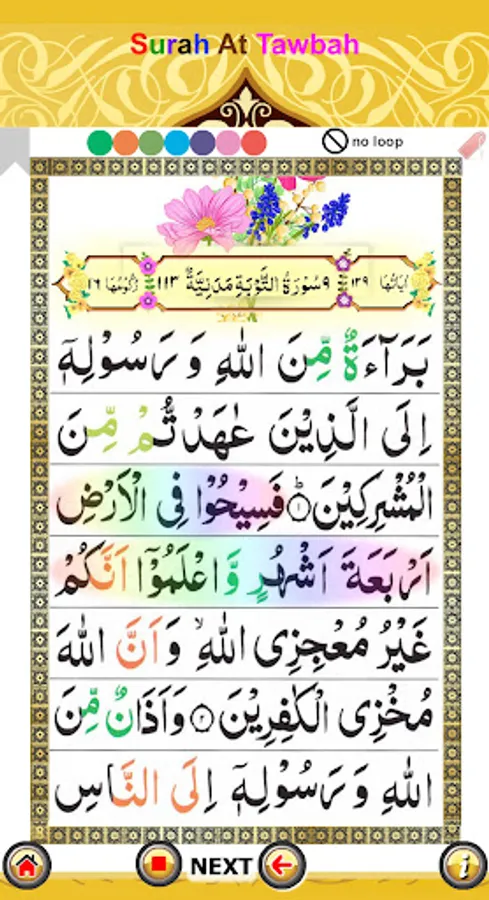 Surah At Tawbah
no loop
اٰیَاتُهَا ۱۲۹ ۹ سُوْرَةُ التَّوْبَةِ مَدَنِیَّةٌ ۱۱۳ رُكُوْعُهَا ۱۶
بَرَآءَةٌ مِّنَ اللّٰهِ وَ رَسُوْلِهٖۤ
اِلَى الَّذِیْنَ عٰهَدْتُّمْ مِّنَ
الْمُشْرِكِیْنَ ۱ فَسِیْحُوْا فِی الْاَرْضِ
اَرْبَعَةَ اَشْهُرٍ وَّ اعْلَمُوْۤا اَنَّكُمْ
غَیْرُ مُعْجِزِی اللّٰهِۙ وَ اَنَّ اللّٰهَ
مُخْزِی الْكٰفِرِیْنَ ۲ وَ اَذَانٌ مِّنَ
اللّٰهِ وَ رَسُوْلِهٖۤ اِلَى النَّاسِ
NEXT
i